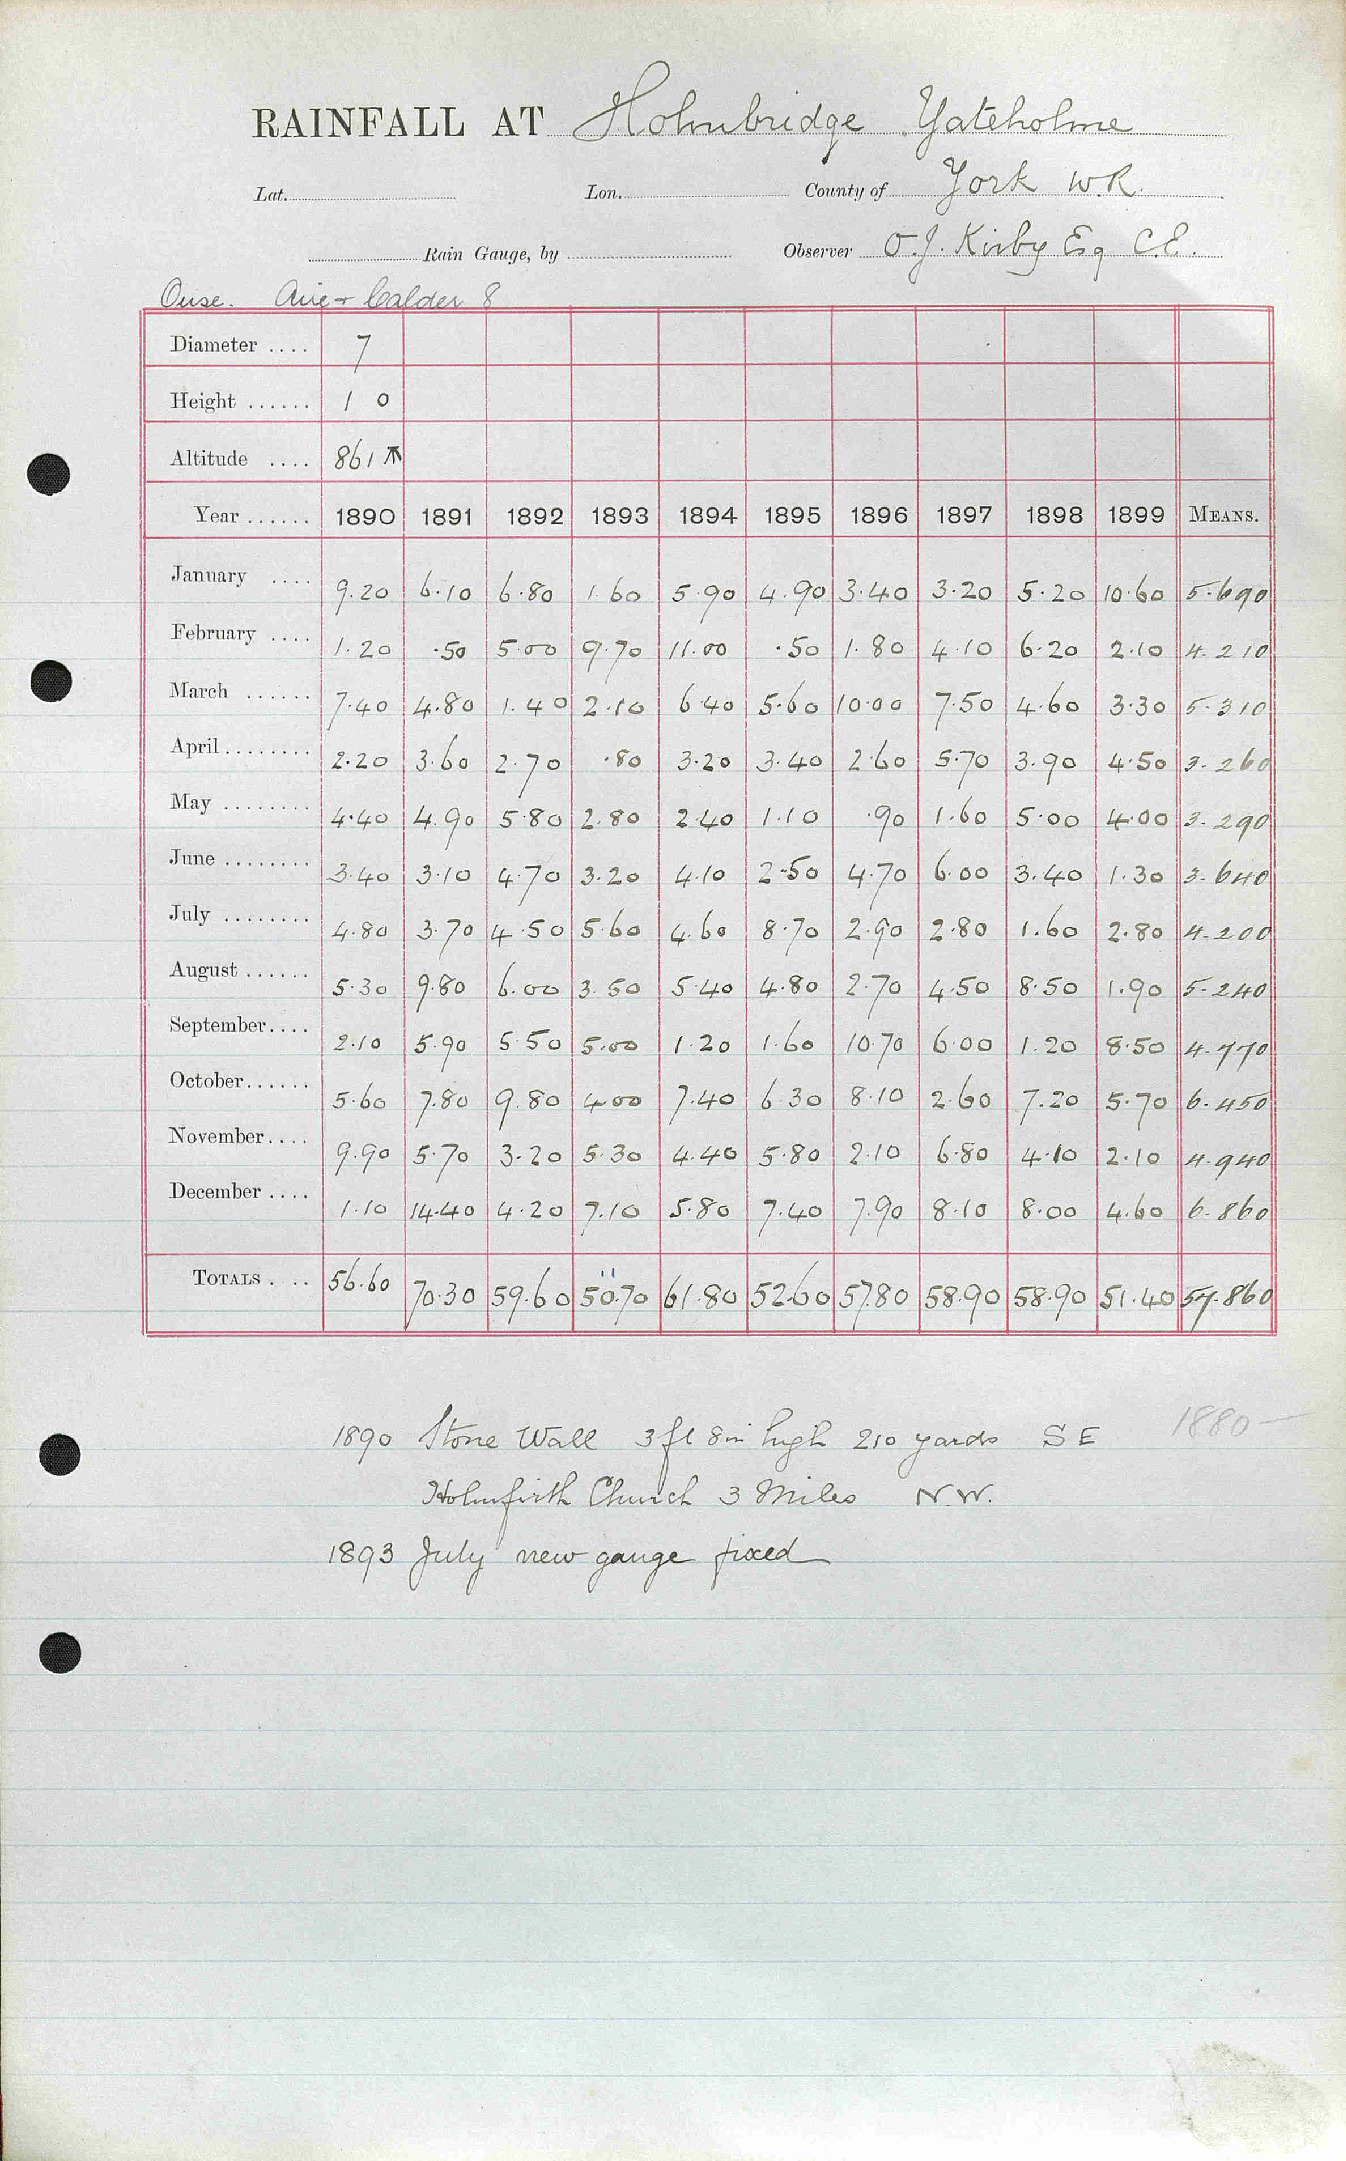 RAINFALL AT Holmbridge Yateholme
Lat. Lon. County of York W.R.
Rain Gauge, by Observer O.J. Kirby Esq C.E.
Ouse. Aire & Calder 8
Diameter .... 7
Height ...... 1 0
Altitude .... 861
Year ...... 1890 1891 1892 1893 1894 1895 1896 1897 1898 1899 MEANS.
January .... 9.20 6.10 6.80 1.60 5.90 4.90 3.40 3.20 5.20 10.60 5.690
February .... 1.20 .50 5.00 9.70 11.00 .50 1.80 4.10 6.20 2.10 4.210
March ...... 7.40 4.80 1.40 2.10 6.40 5.60 10.00 7.50 4.60 3.30 5.310
April ........ 2.20 3.60 2.70 .80 3.20 3.40 2.60 5.70 3.90 4.50 3.260
May ........ 4.40 4.90 5.80 2.80 2.40 1.10 .90 1.60 5.00 4.00 3.290
June ........ 3.40 3.10 4.70 3.20 4.10 2.50 4.70 6.00 3.40 1.30 3.640
July ........ 4.80 3.70 4.50 5.60 4.60 8.70 2.90 2.80 1.60 2.80 4.200
August ...... 5.30 9.80 6.00 3.50 5.40 4.80 2.70 4.50 8.50 1.90 5.240
September.... 2.10 5.90 5.50 5.00 1.20 1.60 10.70 6.00 1.20 8.50 4.770
October...... 5.60 7.80 9.80 4.00 7.40 6.30 8.10 2.60 7.20 5.70 6.450
November.... 9.90 5.70 3.20 5.30 4.40 5.80 2.10 6.80 4.10 2.10 4.940
December .... 1.10 14.40 4.20 7.10 5.80 7.40 7.90 8.10 8.00 4.60 6.860
TOTALS .... 56.60 70.30 59.60 50.70 61.80 52.60 57.80 58.90 58.90 51.40 57.860
1890 Stone Wall 3 ft 8 in high 210 yards SE 1880-
Holmfirth Church 3 Miles N.W.
1893 July new gauge fixed